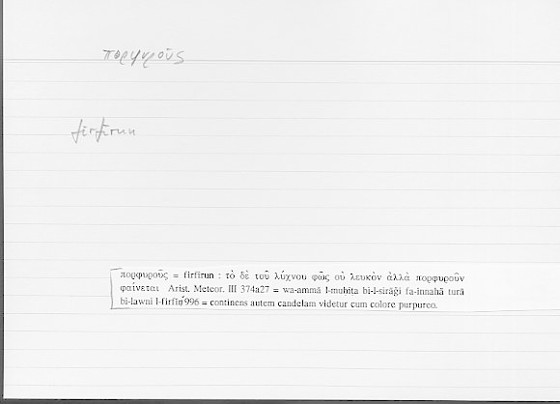 πορφυροῦς
firfirun
πορφυροῦς = firfīrun : τὸ δὲ τοῦ λύχνου φῶς οὐ λευκὸν ἀλλὰ πορφυροῦν
φαίνεται Arist. Meteor. III 374a27 = wa-ammā l-muḥīṭa bi-l-sirāǧi fa-innahā turā
bi-lawni 996 = continens autem candelam videtur cum colore purpureo.